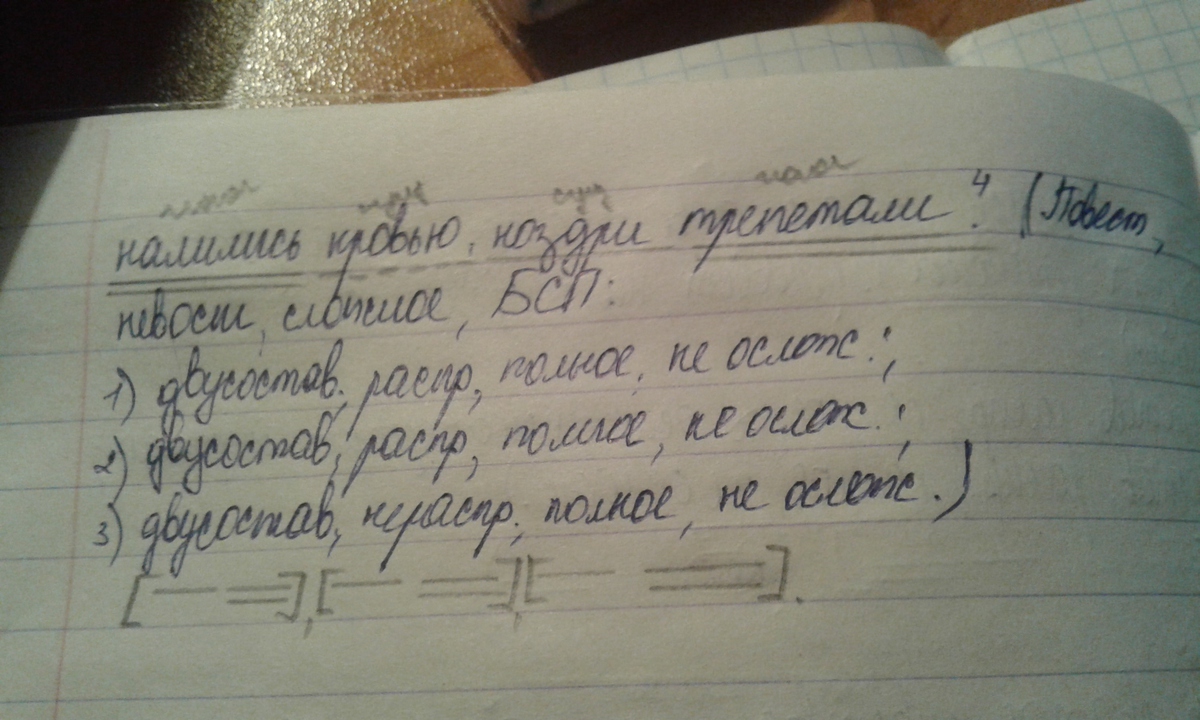 глаг сущ сущ глаг
налились кровью, ноздри трепетали.⁴ (Повест,
невоскл, сложное, БСП:
1) двусостав, распр, полное, не ослож.;
2) двусостав, распр, полное, не ослож.;
3) двусостав, нераспр, полное, не ослож.)
[— =], [— =], [— =].